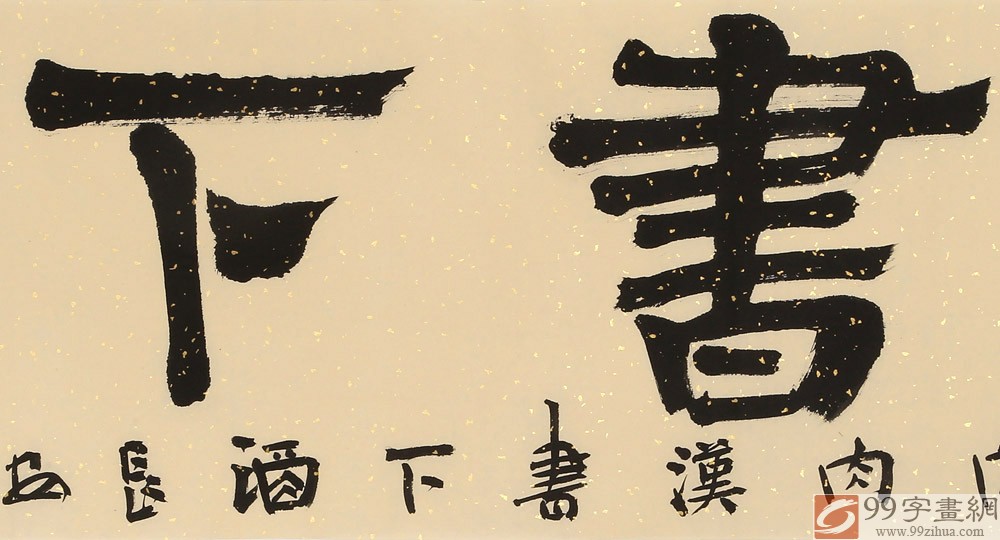 書下
肉漢書下酒長
99字畫網
www.99zihua.com